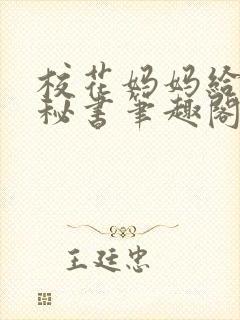 校花妈妈给
秘书笔趣阁
王廷忠